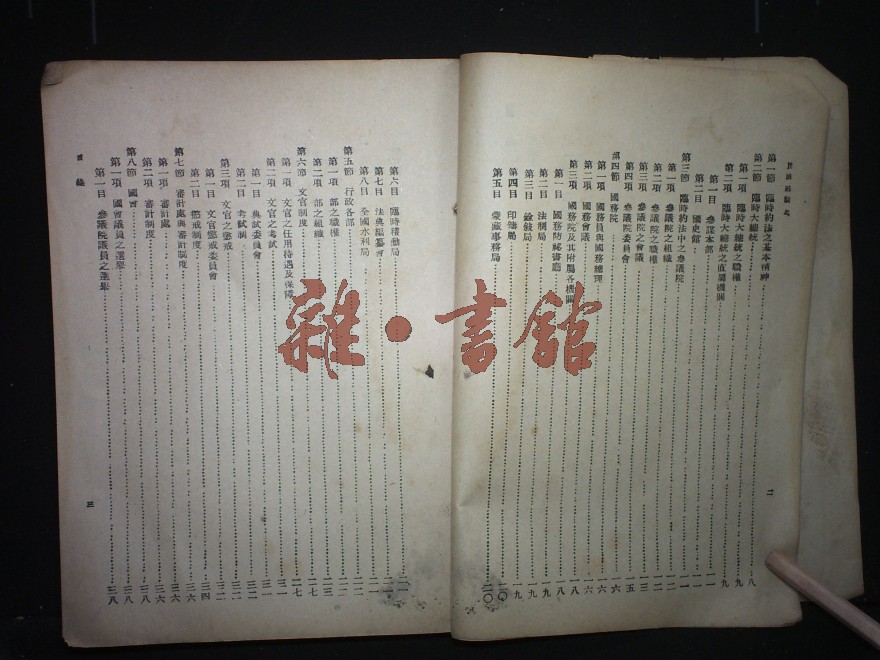 第一節 臨時約法之基本精神 八
第二節 臨時大總統 九
第一項 臨時大總統之職權 九
第二項 臨時大總統之直屬機關
第一目 參謀本部 一一
第二目 國史館 一一
第三節 臨時約法中之參議院 一一
第一項 參議院之組織 一二
第二項 參議院之職權 一二
第三項 參議院之會議 一三
第四項 參議院委員會 一五
第四節 國務院 一六
第一項 國務員與國務總理 一六
第二項 國務會議 一六
第三項 國務院及其附屬各機關 一八
第一目 國務院秘書廳 一八
第二目 法制局 一九
第三目 銓敘局 一九
第四目 印鑄局 二〇
第五目 蒙藏事務局 二〇
二
第六目 臨時稽勳局 二一
第七目 法典編纂會 二一
第八目 全國水利局 二一
第五節 行政各部 二二
第一項 部之職權 二二
第二項 部之組織 二三
第六節 文官制度 二七
第一項 文官之任用待遇及保障 二七
第二項 文官之考試 三一
第一目 典試委員會 三一
第二目 考試制 三二
第三項 文官之懲戒 三二
第一目 文官懲戒委員會
第二目 懲戒制度 三四
第七節 審計處與審計制度 三六
第一項 審計處 三六
第二項 審計制度 三八
第八節 國會 三八
第一項 國會議員之選舉 三八
第一目 參議院議員之選舉 三八
目錄
三
雜·書館